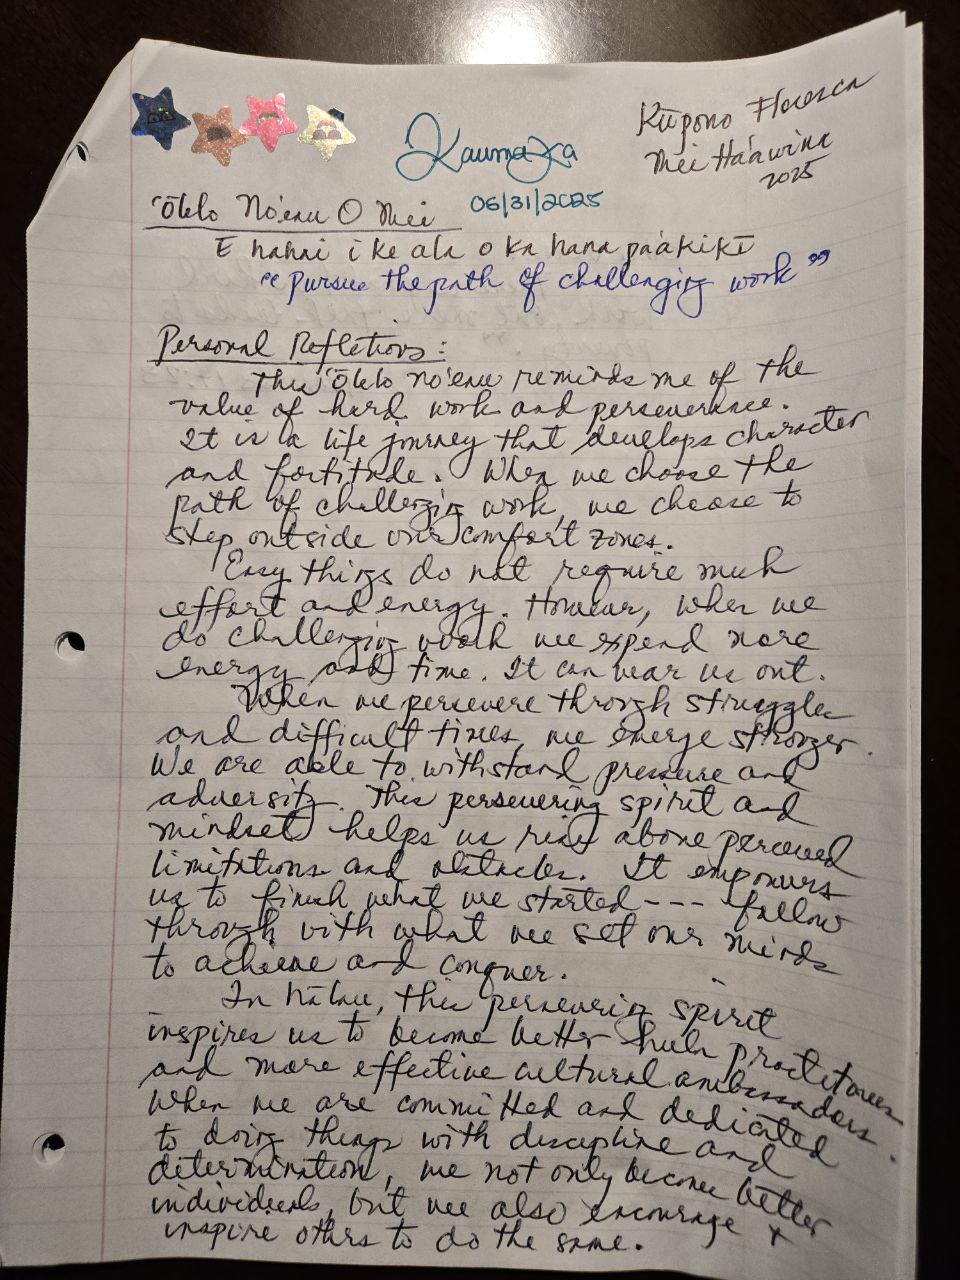 Kūpono Floresca
Mei Ha'awina
2025
Kaumaka
06/31/2025
'Ōlelo No'eau O Mei
E hahai i ke ala o ka hana pa'akikī
"Pursue the path of challenging work"
Personal Refletions:
This 'Ōlelo No'eau reminds me of the
value of hard work and perseverance.
It is a life journey that develops character
and fortitude. When we choose the
path of challenging work, we choose to
step outside our comfort zones.
Easy things do not require much
effort and energy. However, when we
do challenging work we expend more
energy and time. It can wear us out.
When we persevere through struggles
and difficult times, we emerge stronger.
We are able to withstand pressure and
adversity. This persevering spirit and
mindset helps us rise above perceived
limitations and obstacles. It empowers
us to finish what we started --- follow
through with what we set our minds
to achieve and conquer.
In hālau, this persevering spirit
inspires us to become better hula practitioners
and more effective cultural ambassadors.
When we are committed and dedicated
to doing things with discipline and
determination, we not only become better
individuals, but we also encourage +
inspire others to do the same.